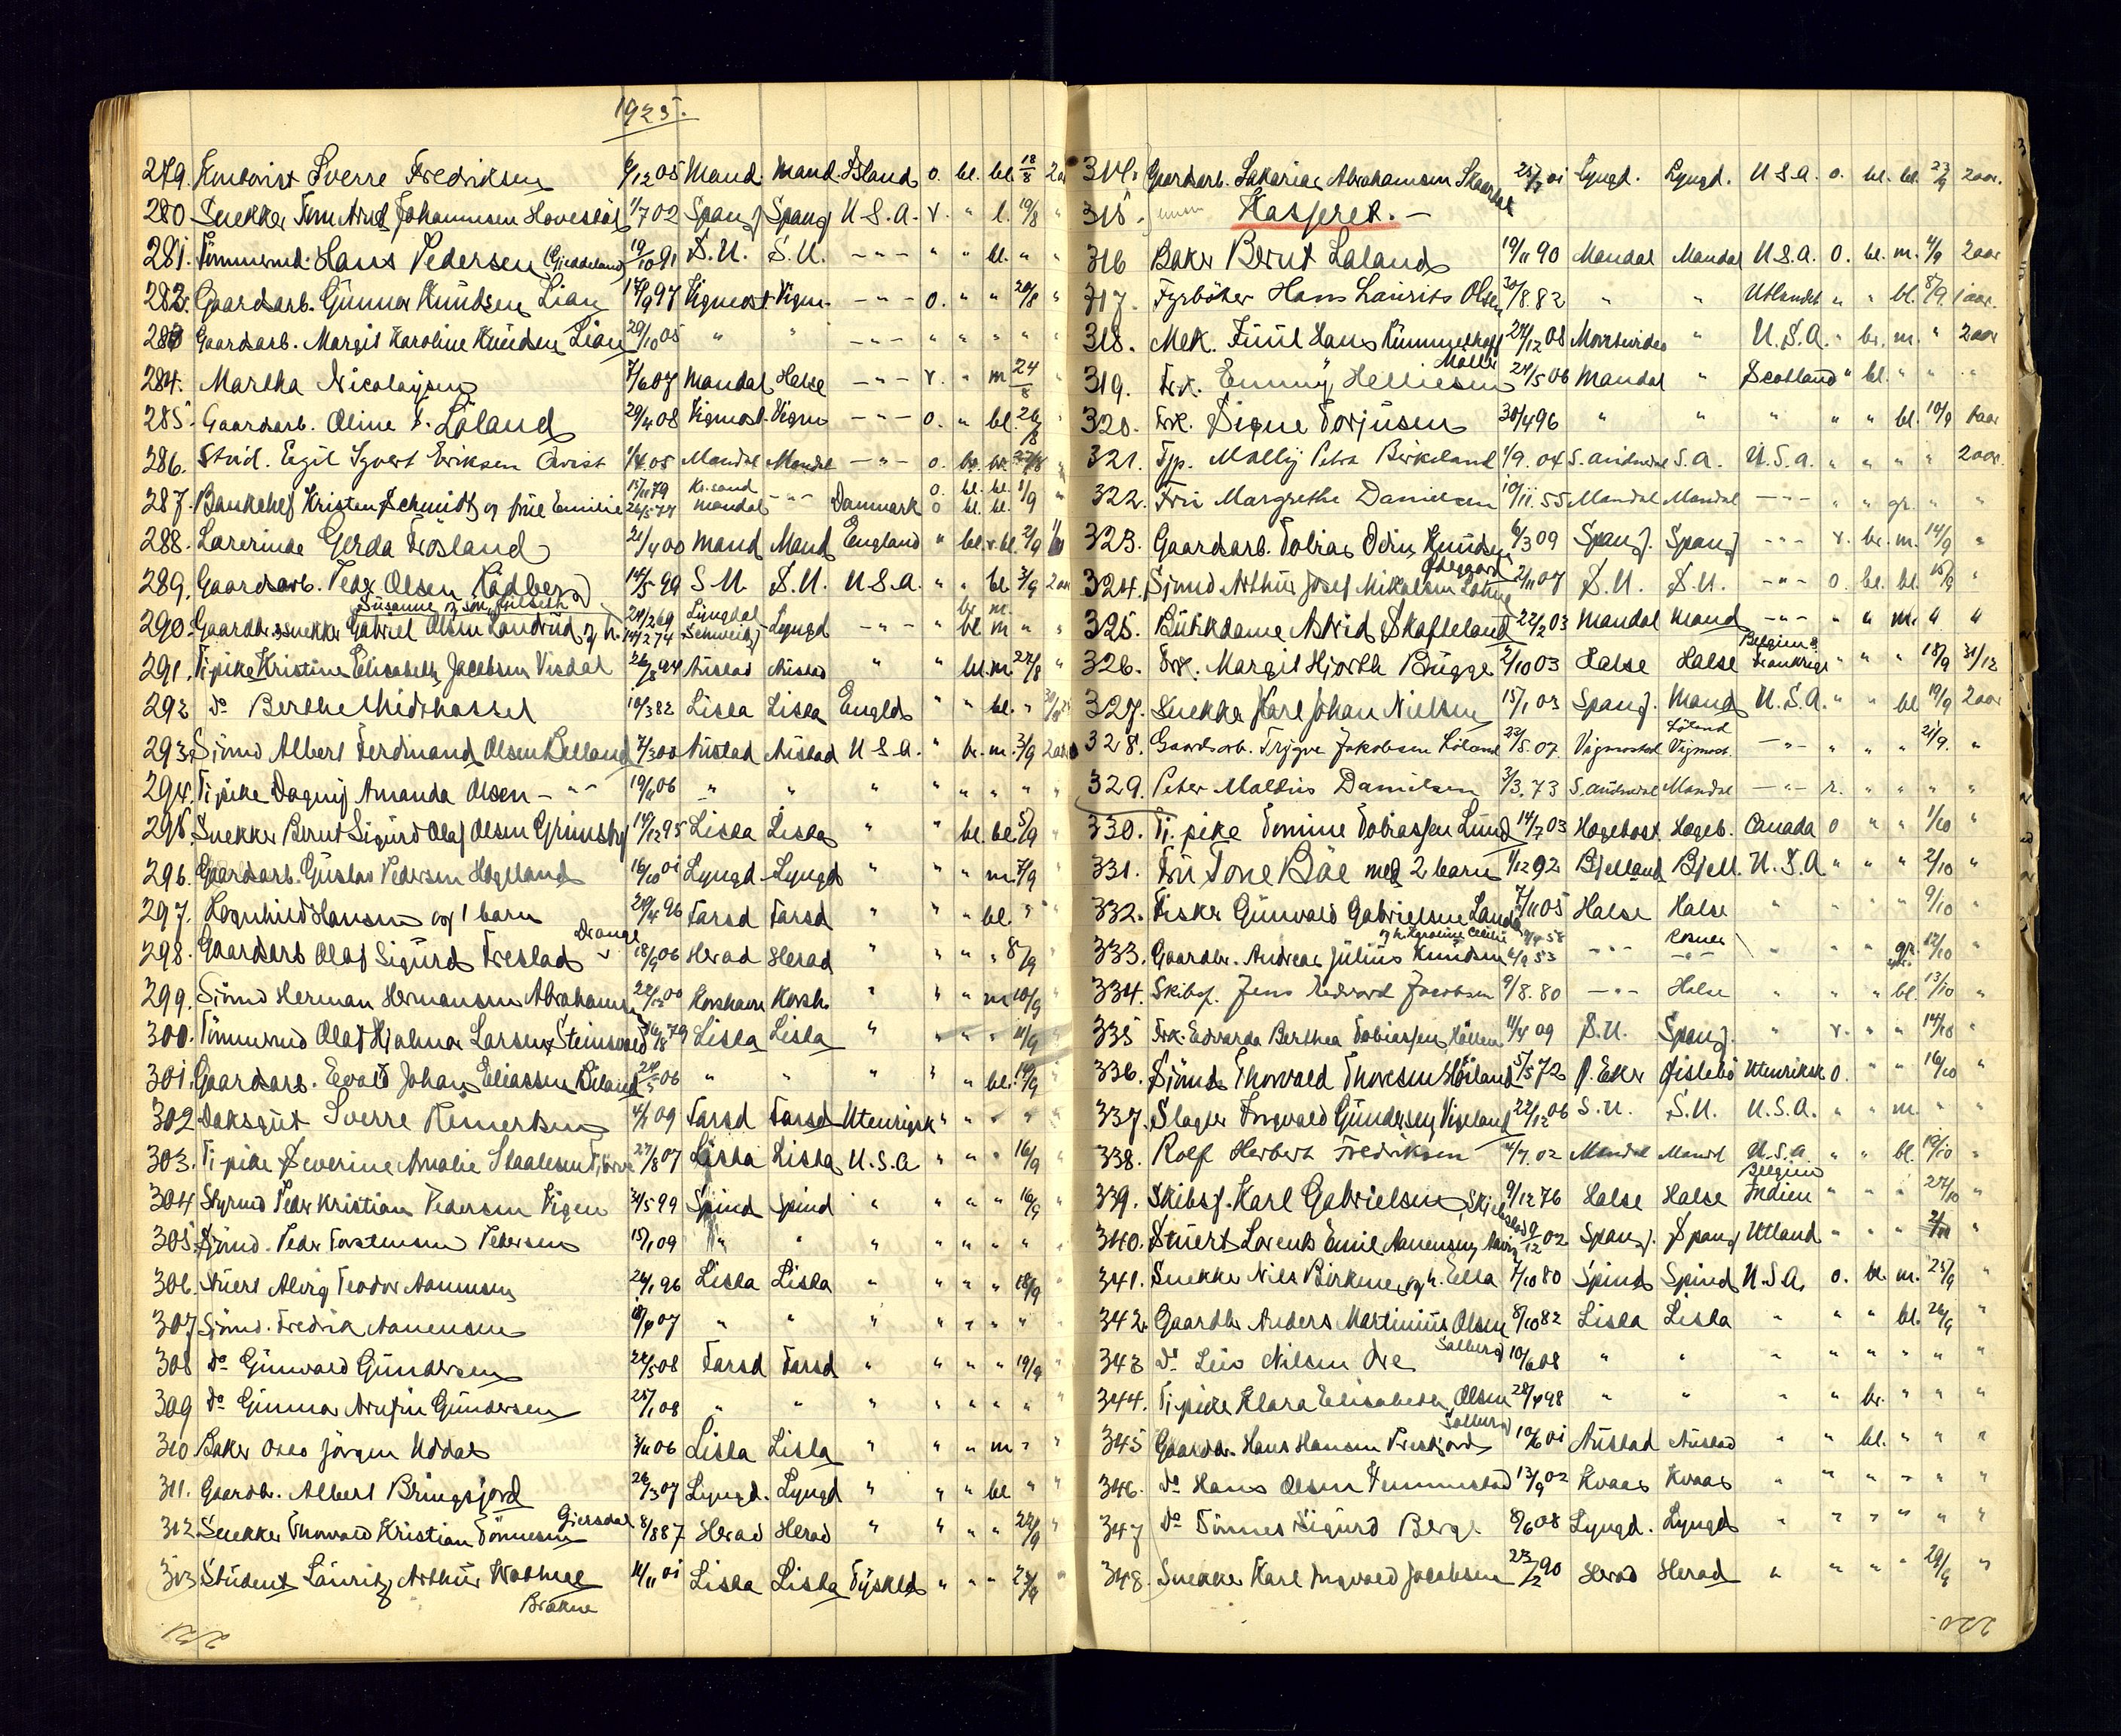 1925.
279. Kontorist Sverre Fredriksen 6/12 05 Mand. Mand. Island o. bl. bl. 18/8 2 aar
280 Snekker Johannesen 1/7 02 Spang Spang U.S.A. r. " l. 19/8 "
281. Tömmermd. Hans Pedersen Gjeddeland 19/10 91 S.U. S.U. -"- " " bl. " "
282. Gaardsarb. Gunnar Knudsen Lian 17/9 97 Vigmost. Vigm. -"- o. " " 20/8 "
283 Gaardsarb. Margit Karoline Knudsen Lian 29/10 05 " " -"- " " " " "
284. Martha Nicolaysen 7/6 07 Mandal Halse -"- r. " m 24/8
285. Gaardsarb. Oline S. Löland 29/4 08 Vigmost. Vigm -"- o. " bl. 26/8
286. Stud. Egil Syvert Eriksen Qvist 1/4 05 Mandal Mandal -"- o. br. br. 27/8 "
287. Bankchef Kristen Schmidt og frue Emilie 15/11 79 Kr.sand -"- Danmark o. bl. bl. 1/9 "
26/5 77 Mandal o bl. bl.
288. Lærerinde Gerda Frösland 21/4 00 Mand Mand England " bl. r. bl. 2/9
289. Gaardsarb. Peder Olsen Rödberg 14/5 99 S.U. S.U. U.S.A. " " bl 3/9 2 aar
Susanne og sön
290. Gaardbr. og snekker Gabriel Olsen Landrud og h. 24/2 69 Lyngdal Lyngd -"- " br m. " "
14/2 74 bl m
291. Tj.pike Kristine Elisabeth Jacobsen Visdal 26/8 94 Austad Austad " " bl. m. 27/8 "
292 do Berthe Midthassel 10/3 82 Lista Lista Engld " " bl. "
293. Sjömd Albert Ferdinand Olsen Helland 7/3 00 Austad Austad U.S.A. " br. m. 3/9 2 aar
294. Tj.pike Dagny Amanda Olsen -"- 19/11 06 " " " " " " " "
295. Snekker Bernt Sigurd Olaf Olsen Grimsby 14/12 95 Lista Lista " " bl. bl. 5/9 "
296. Gaardsarb. Gustav Pedersen Högeland 16/10 01 Lyngd Lyngd " " " m 7/9 "
297. Ragnhild Hansen og 1 barn 29/4 96 Farsd Farsd " " " bl. " "
Drange
298. Gaardsarb Olaf Sigurd Trestad 18/9 06 Herad Herad " " " " 8/9 "
299. Sjömd Herman Hermansen Abrahamsen 22/12 00 Korshavn Korsh. " " " m 10/9 "
300. Tömmermd Olaf Hjalmar Larsen Steinsvad 79 Lista Lista " " " " 11/9 "
301. Gaardsarb. Evald Johan Eliassen 06 " " " " " bl. 14/9
302 Daksgut Sverre Reinertsen 4/1 09 Farsd Farsd Utenrigsk " " " " "
303. Tj.pike Severine Amalie Staalesen 27/8 07 Lista Lista U.S.A " " " 16/9
304 Styrmd Peder Kristian Pedersen Vigen 31/5 99 Spind Spind " " " " 16/9
305. Sjömd. Peder Torstensen Pedersen 15/1 09 " " " " " " " "
306. Stuert Alvig Teodor Aanensen 26/1 96 Lista Lista " " " " 18/9
307 Sjömd. Fredrik Aanensen 07 " " " " " " "
308 do Gunvald Gundersen 22/5 08 Farsd Farsd " " " " 19/9 "
309 do Gunnar Gundersen 25/1 08 " " " " " " " "
310 Baker Jörgen Uddal 3/11 06 Lista Lista " " " m " "
311. Gaardbr. Albert Bringsjord 26/3 07 Lyngd. Lyngd " " " bl " "
Giersdal
312 Snekker Thorvald Kristian Tönnesen 8/8 87 Herad Herad " " " " 22/9
313 Student Lauritz Arthur Wathne 14/11 01 Lista Lista Tyskld " " "
Brækne
221
314. Gaardarb. Sakarias Abrahamsen 01 Lyngd. Lyngd. U.S.A. o. bl. bl. 23/9 2 aar.
315. Kasseret. —
316 Baker Bernt Laland 19/11 90 Mandal Mandal U.S.A. o. bl. m. 4/9 2 aar
317. Fyrböter Hans Laurits Olsen 30/8. 82 " " Utlandet " " bl. 8/9. 1 aar.
318. Mek. Hans 08 " U.S.A. " br. m. " 2 aar
319. Frk. Emmy Helliesen 29/5 06 Mandal " Scotland " bl. " " "
320. Frk. Signe Torjusen 30/4 96 " " " " " bl. 10/9
321. Tjp. Mally Petra Birkeland 1/9. 04 S. Audnedal S.A. U.S.A. " " " " 2 aar.
322. Fru Margrethe Danielsen 10/11. 55 Mandal Mandal -"- " " gr. " "
323. Gaardsarb. Tobias Odin Knudsen 6/3 09 Spang. Spang -"- r. br. m. 14/9 "
Ödegaard
324. Sjömd Arthur Josef Mikalsen 2/11 07 S.U. S.U. -"- o. bl. bl. 15/9 "
325. Budskdame Astrid Skofteland 22/2 03 Mandal Mand -"- " " m. " "
326. Frk. Margit Hjorth Bugge 2/10 03 Halse Halse Belgien & Frankrige " " " 18/9 31/12
327. Snekker Karl Johan Nielsen 15/1 03 Spang. Mand U.S.A. " " bl 19/9 2 aar
328. Gaardsarb. Trygve Jakobsen Löland 22/5. 07. Vigmostad Löland Vigmost. -"- " " " 21/9. "
329. Peter Mathias Danielsen 3/3. 73 S. Audnedal Mandal -"- r. " " " "
330. Tj.pike Tomine Tobiassen Lund 14/7 03 Hægebost. Hægeb. Canada o " " 1/10 "
331. Fru Tone Båe med 2 barn 1/12 92 Bjelland Bjell. U.S.A " " " 2/10 "
332. Fisker Gunvald Gabrielsen Landø 7/11 05 Halse Halse " " " " 9/10 "
og h. Karoline Cecilie 58
333. Gaardbr. Andreas Julius Knudsen 53 -"- -"- " " gr. 12/10 "
334. Skibsf. Jens Edvard Jacobsen 9/8. 80 -"- Halse " " " bl. 13/10 "
335 Frk. Edvarda Berthea Tobiassen 11/4 09 S.U. Spang. " r. " " 14/10 "
336. Sjömd Thorvald Thoresen Höiland 5/5 72 Ö. Eker Øislebö Utenriksk o. " " 16/10 "
337. Slagter Ingvald Gundersen Vigeland 22/12 06 S.U. S.U. U.S.A. " " m. " "
338. Rolf Herbert Fredriksen 4/7. 02 Mandal Mand U.S.A. " " bl. 19/10 "
339. Skibsf. Karl Gabrielsen 9/12 76 Halse Halse Belgien Indien " " " 27/10 "
340. Stuert Lorents Emil Aanensen 9/12 02 Spang. Spang Utland " " " "
341. Snekker Nils Birkenes og h. Ella 7/10 80 Spind Spind U.S.A. o. bl. m. 25/9 "
342. Gaardbr Anders Martinius Olsen 8/10 82 Lista Lista " " " bl. 26/9 "
Salberg
343 do Nilsen Ore 10/6 08 " " " " " " " "
344. Tj.pike Klara Elisabeth Olsen 28/4 98 " " " " br. " " "
Salberg
345 Gaardbr. Hans Hansen 10/6 01 Austad Austad " " bl. " " "
346. do Hans Olsen 13/9 02 Kvaas Kvaas " " " " " "
347 do Tönnes Sigurd Berge 8/6 08 Lyngd. Lyngd " " " " " "
348. Snekker Karl Ingvald Jacobsen 23/2 90 Herad Herad " " " " 29/9 "
220.